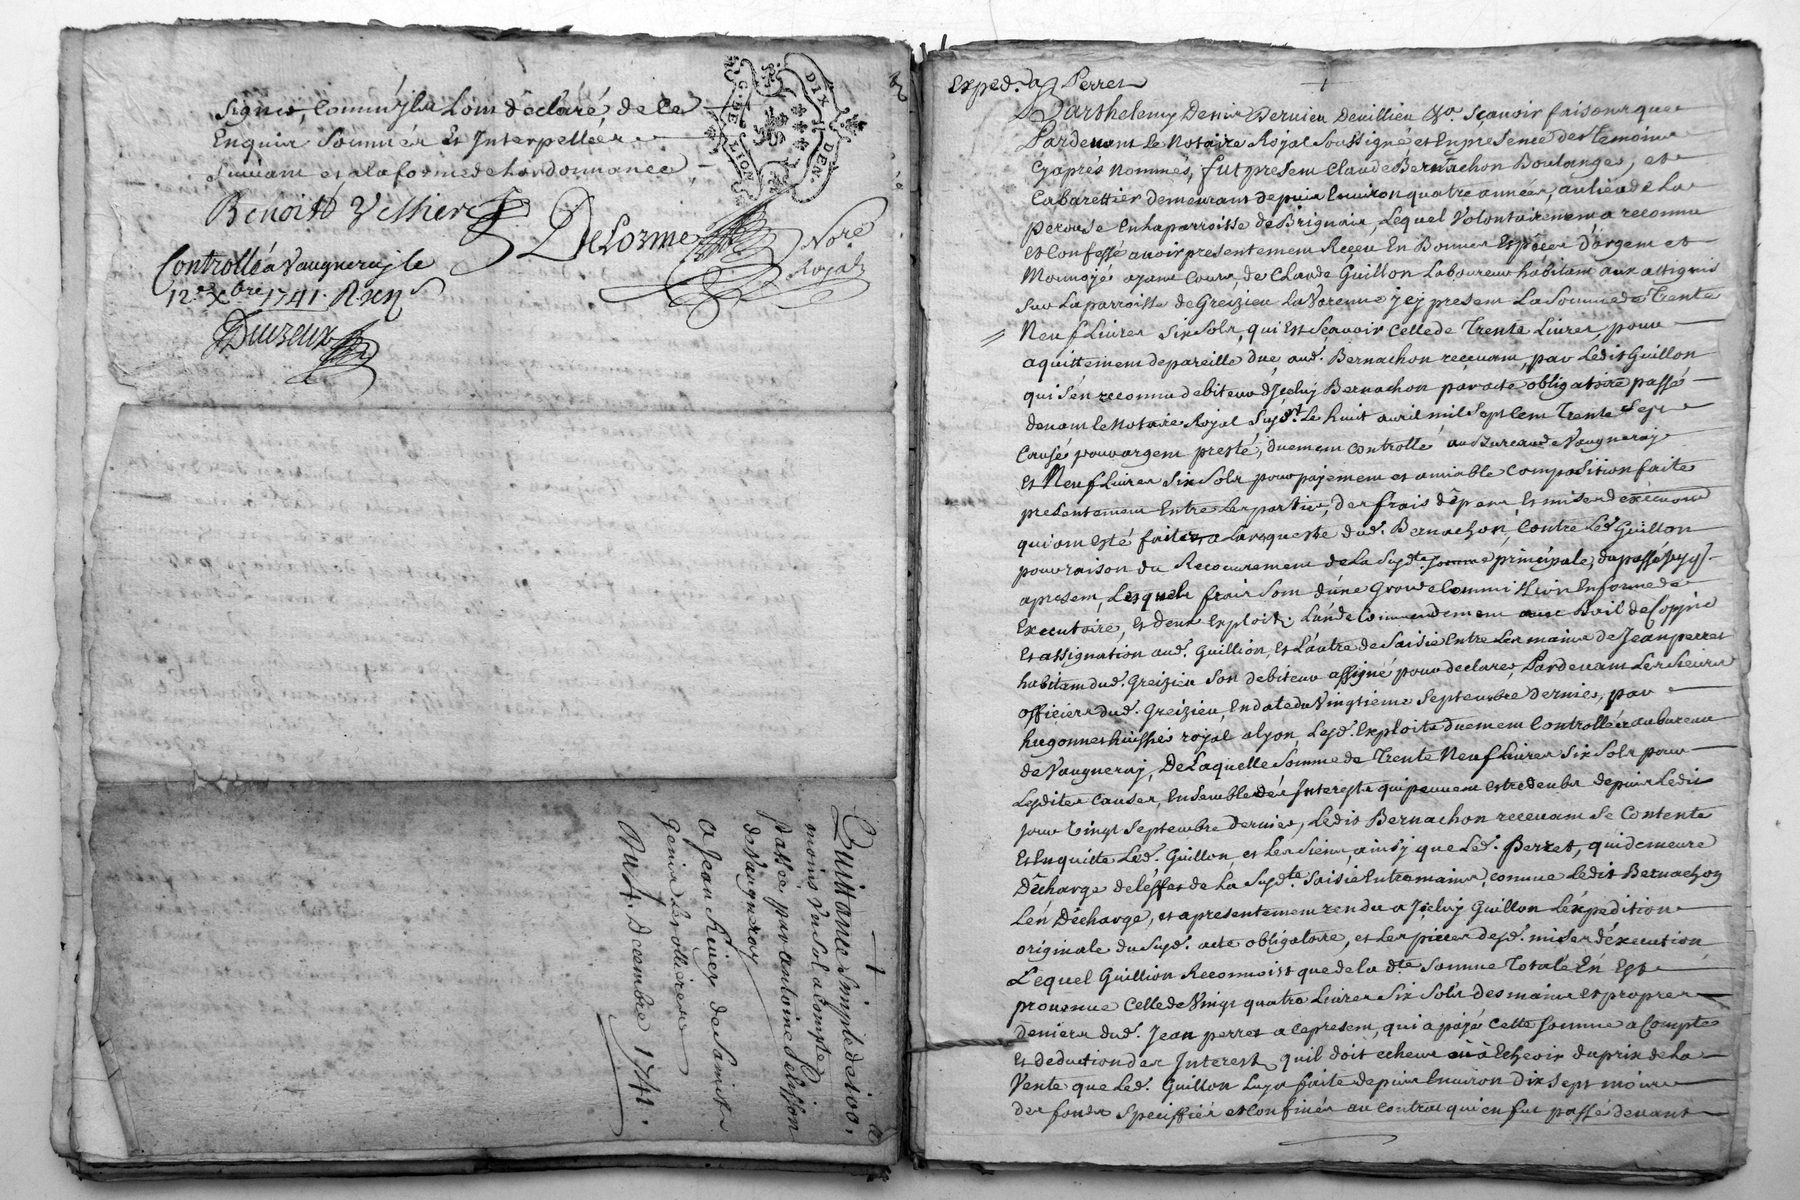 signer, Comm'jls Lont déclaré, de ce
Enquis Sommés Et Interpellés
Suivant et a la forme de Lordonnance
Benoist Vessier
Delorme
Nore
Royal
Controllé a Vaugneray le
12e Xbre 1741. R
G. DE LION
DIX DEN.
Quittance simple de 100.
moins Un Sol a compte
Passée par antoine
de Vaugneray
a Jean Rivier de Saint
Genis Les ollieres
Du 4. Decembre 1741.
Exped. a Perret
Barthelemy Denis Dervieu Devillieu &a sçavoir faisons que
Pardevant Le Notaire Royal Soussigné et En presence des temoins
Cy aprés nommés, fut present Claude Bernachon Boulanger, et
Cabarettier demeurant depuis Environ quatre années, au lieu de La
perouse En la parroisse de Brignais, Lequel Volontairement a reconnu
et Confessé avoir presentement Reçeu En Bonnes Especes d'argent et
Monnoye ayant Cours, de Claude Guillon Laboureur habitant aux
Sur La parroisse de Greizieu la Varenne jcy present La Somme de Trente
Neuf Livres Six Sols, qui Est sçavoir Celle de Trente Livres, pour
aquittement de pareille due aud. Bernachon recevant, par Ledit Guillon
qui s'en reconnu debiteur d'Jceluy Bernachon par acte obligatoire passé
devant le Notaire Royal Susd.t Le huit avril mil Sept Cent Trente Sept
Causé pour argent presté, duement Controllé au Bureau de Vaugneray
Et Neuf Livres Six Sols pour payement et amiable Composition faite
presentement Entre Les parties, des frais dêpens, Et mises d'exécution
qui ont Esté faites a La requeste dud. Bernachon, Contre Led. Guillon
pour raison du Recouvrement de La Susd.te somme principale, du passé jusq.
apresent, Lesquels frais Sont d'une Grosse Commission En forme de
Executoire, et deux Exploits, L'un de Commendement avec Bail de Coppie
Et assignation aud. Guillion, et L'autre de Saisie Entre Les mains de Jean perret
habitant dud. Greizieu Son debiteur assigné pour declarer, Pardevant Les Sieurs
officiers dud. Greizieu, En date du Vingtieme Septembre Dernier, par
hugonnet huissier royal a Lyon Lesd. Exploits duement Controllés au bureau
de Vaugneray, De Laquelle Somme de Trente Neuf Livres Six Sols pour
Lesdites Causes, Ensemble des Interests qui peuvent estre deubs depuis Ledit
jour Vingt Septembre dernier, Ledit Bernachon recevant Se Contente
Et En quitte Led. Guillon, et Les Siens, ainsy que Led. Perret, qui demeure
Décharge de L'effet de La Susd.te Saisie Entre mains, comme Ledit Bernachon
L'en Décharge, et a presentement rendu a Jceluy Guillon L'éxpedition
originale du Susd. acte obligatoire, et Les pieces desd. mises d'execution
Lequel Guillion Reconnoist que de la dte Somme Totale En Est
provenue Celle de Vingt quatre Livres Six Sols des mains et propres
deniers dud. Jean perret a Ce present, qui a païé Cette Somme a Compte
Et déduction des Interest, quil doit echeus ou a Echeoir du prix de La
Vente que Led. Guillon Luy a faite depuis Environ Dix Sept mois
des fonds Speciffiés et Confinés au Contrat qui en fut passé devant